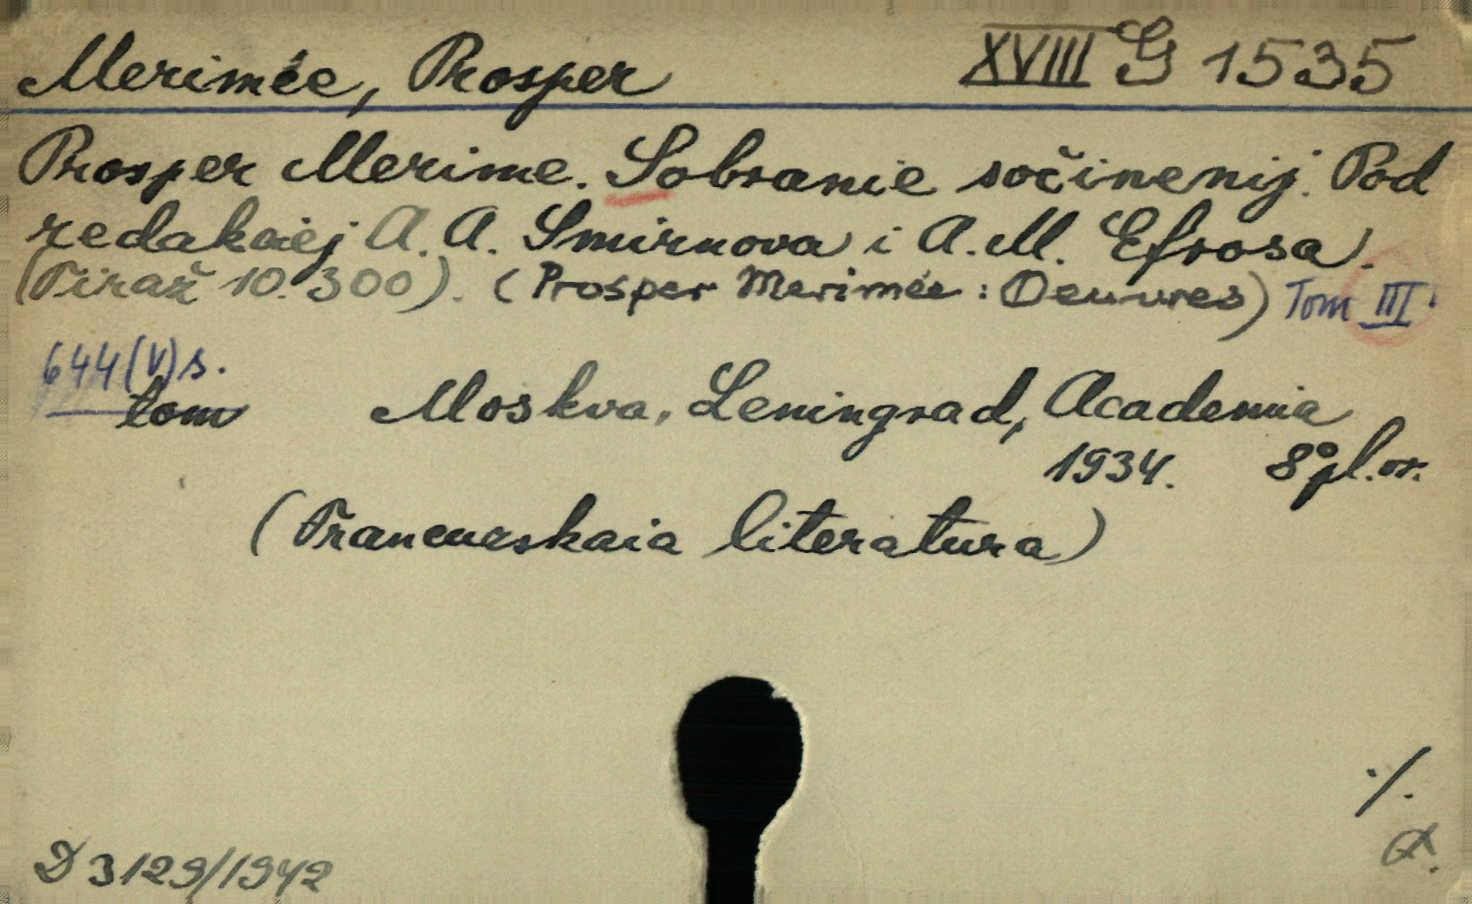 Merimée, Prosper XVIII G 1535
Prosper Merime. Sobranie sočinenij. Pod
redakciej A. A. Smirnova i A. M. Efrosa.
(Tiraž 10.300). (Prosper Merimée: Oeuvres) Tom III.
644(V)s.
tom Moskva, Leningrad, Academia
1934. 8° pl. or.
(Francuzskaia literatura)
./.
D 3129/1942